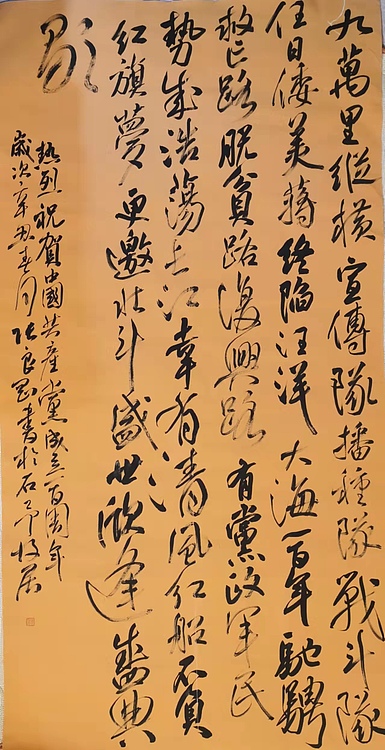 九萬里縱横宣傳隊播種隊戰斗隊
任日倭美蔣終陷汪洋大海百年馳騁
救亡路脱貧路復興路有黨政軍民
勢成浩蕩長江幸有清風红船不負
红旗夢更邀北斗盛世欣逢盛典
熱烈祝賀中國共産黨成立百周年
歲次辛丑春月张良書於石